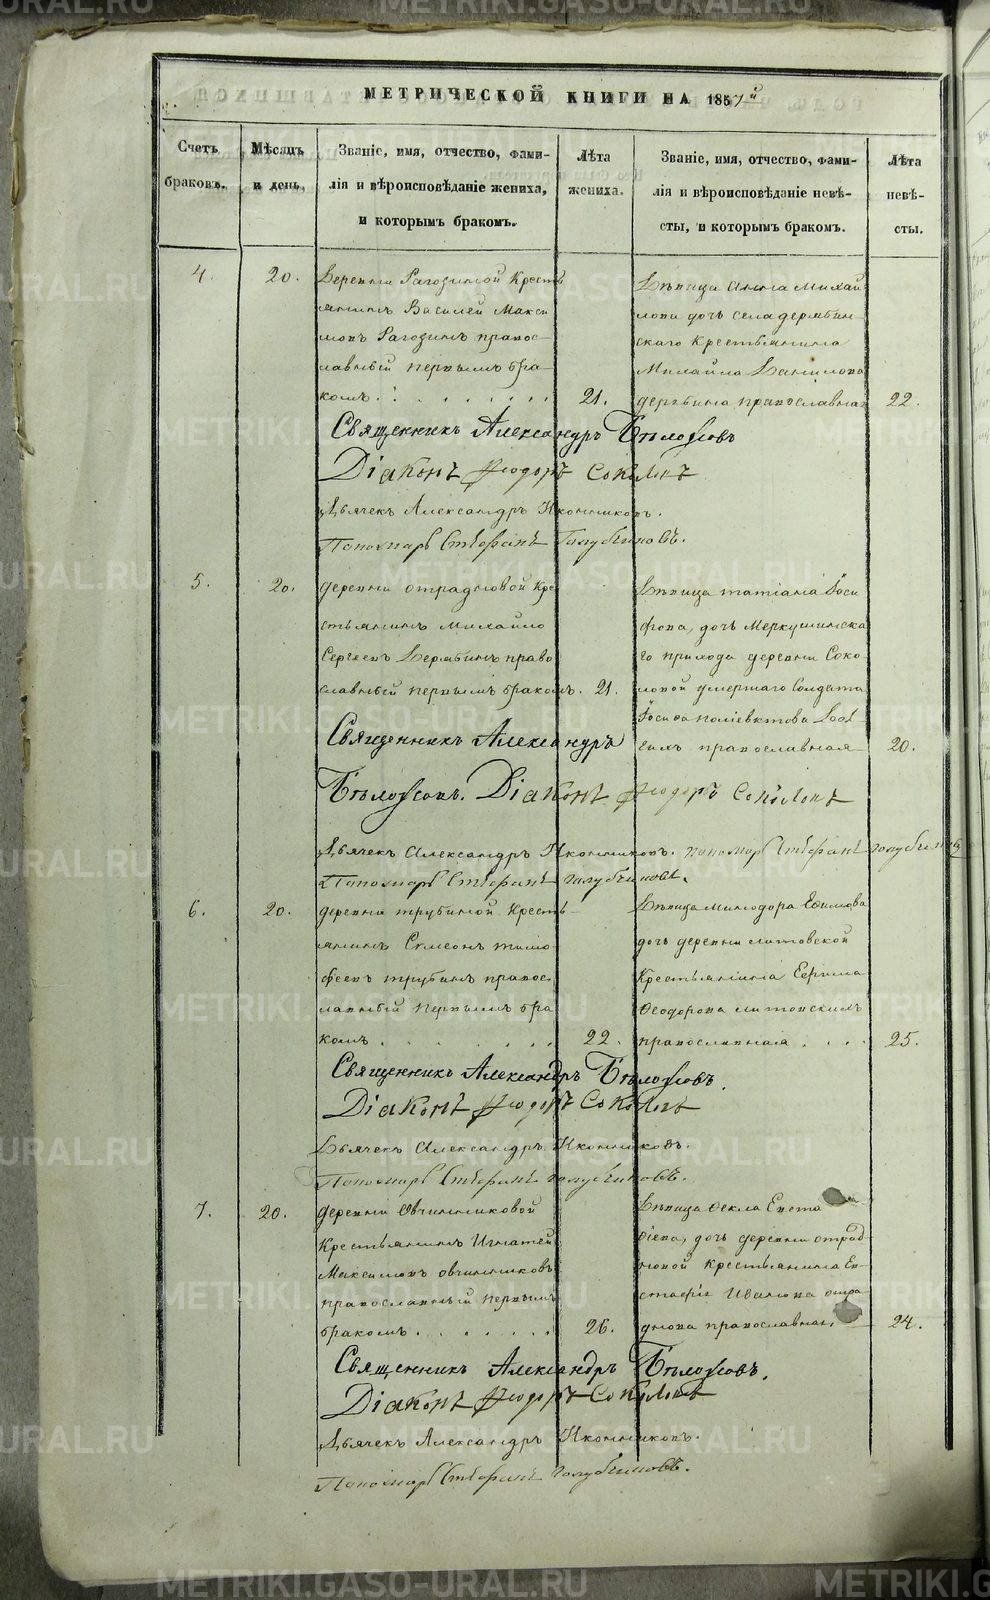 МЕТРИЧЕСКОЙ КНИГИ НА 1857й
Счетъ браковъ.
Мѣсяцъ и день,
Званіе, имя, отчество, фами-
лія и вѣроисповѣданіе жениха,
и которымъ бракомъ.
Лѣта жениха.
Званіе, имя, отчество, фами-
лія и вѣроисповѣданіе невѣ-
сты, и которымъ бракомъ.
Лѣта невѣ-
сты.
4. 20.
Деревни Рагозиной Кресть
янинъ Василей Макси
мовъ Рагозинъ правос-
лавный первымъ бра-
комъ 21.
Дѣвица Анна Михай
лова дочь села дерябин-
скаго Крестьянина
Михайла Данилова
дерябина православная 22.
Священникъ Александръ Бѣлоусовъ
Діаконъ Ѳеодоръ Соколовъ
Дьячекъ Александръ Иконниковъ.
Пономарь Стефанъ Голубчиковъ.
5. 20.
деревни отрадновой Кре
стьянинъ Михайло
Сергеевъ Дерябинъ право
славный первымъ бракомъ. 21.
Дѣвица татіана Іоси
фова, дочь Меркушинска
го прихода деревни Соко-
ловой умершаго Солдата
Іосифа поліевктова
православная 20.
Священникъ Александръ
Бѣлоусовъ. Діаконъ Ѳеодоръ Соколовъ
Дьячекъ Александръ Иконниковъ. пономарь Стефанъ Голубчиковъ
Пономарь Стефанъ Голубчиковъ.
6. 20.
деревни трубиной Кресть
янинъ Симеонъ тимо
феевъ трубинъ правос
лавный первымъ бра
комъ 22.
Дѣвица минодора Ефимова
дочь деревни литовской
Крестьянина Ефима
Ѳеодорова литовскихъ
православная 25.
Священникъ Александръ Бѣлоусовъ.
Діаконъ Ѳеодоръ Соколовъ
Дьячекъ Александръ Иконниковъ.
Пономарь Стефанъ Голубчиковъ.
7. 20.
деревни Овчинниковой
Крестьянинъ Игнатей
Максимовъ овчинниковъ
православный первымъ
бракомъ 26.
Дѣвица Ѳекла Евста
фіева, дочь деревни отрад
новой крестьянина Ев-
стафія Иванова отра-
днова православная. 24.
Священникъ Александръ Бѣлоусовъ.
Діаконъ Ѳеодоръ Соколовъ
Дьячекъ Александръ Иконниковъ.
Пономарь Стефанъ Голубчиковъ.
METRIKI.GASO-URAL.RU